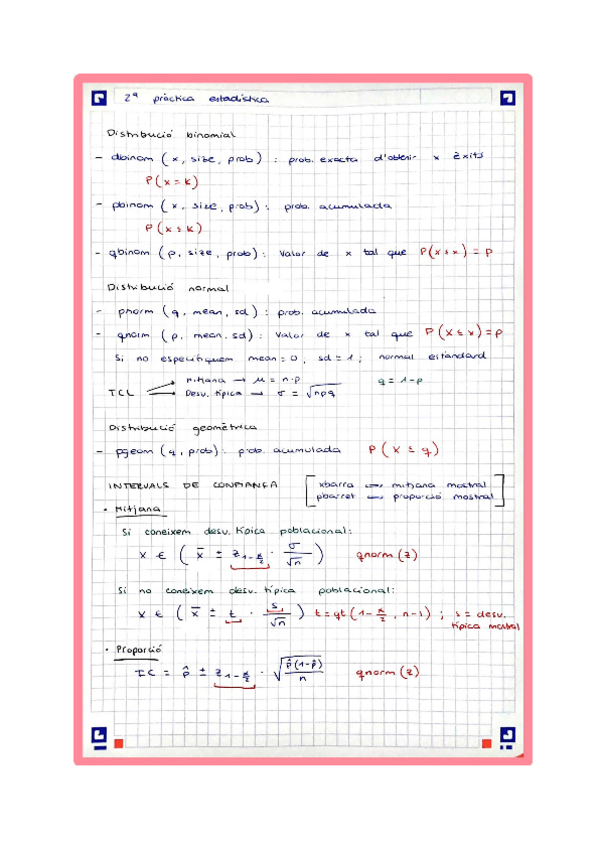 2ª pràctica estadística
Distribució binomial
- dbinom (x, size, prob) : prob. exacta d'obtenir x èxits
P(X = k)
- pbinom (x, size, prob) : prob. acumulada
P(X ≤ k)
- qbinom (p, size, prob) : Valor de x tal que P(X ≤ x) = p
Distribució normal
- pnorm (q, mean, sd) : prob. acumulada
- qnorm (p, mean, sd) : Valor de x tal que P(X ≤ x) = p
Si no especifiquem mean = 0, sd = 1 ; normal estandard
TCL → Mitjana → μ = n·p q = 1-p
→ Desv. típica → σ = √npq
Distribució geomètrica
- pgeom (q, prob) : prob. acumulada P(X ≤ q)
INTERVALS DE CONFIANÇA [ xbarra → mitjana mostral
pbarret → proporció mostral ]
· Mitjana
Si coneixem desv. típica poblacional:
x ∈ ( x̄ ± z₁₋α/₂ · σ/√n ) qnorm(z)
Si no coneixem desv. típica poblacional:
x ∈ ( x̄ ± t · s/√n ) t = qt(1-α/2, n-1) ; s = desv.
típica mostral
· Proporció
IC = p̂ ± z₁₋α/₂ · √(p̂(1-p̂)/n) qnorm(z)